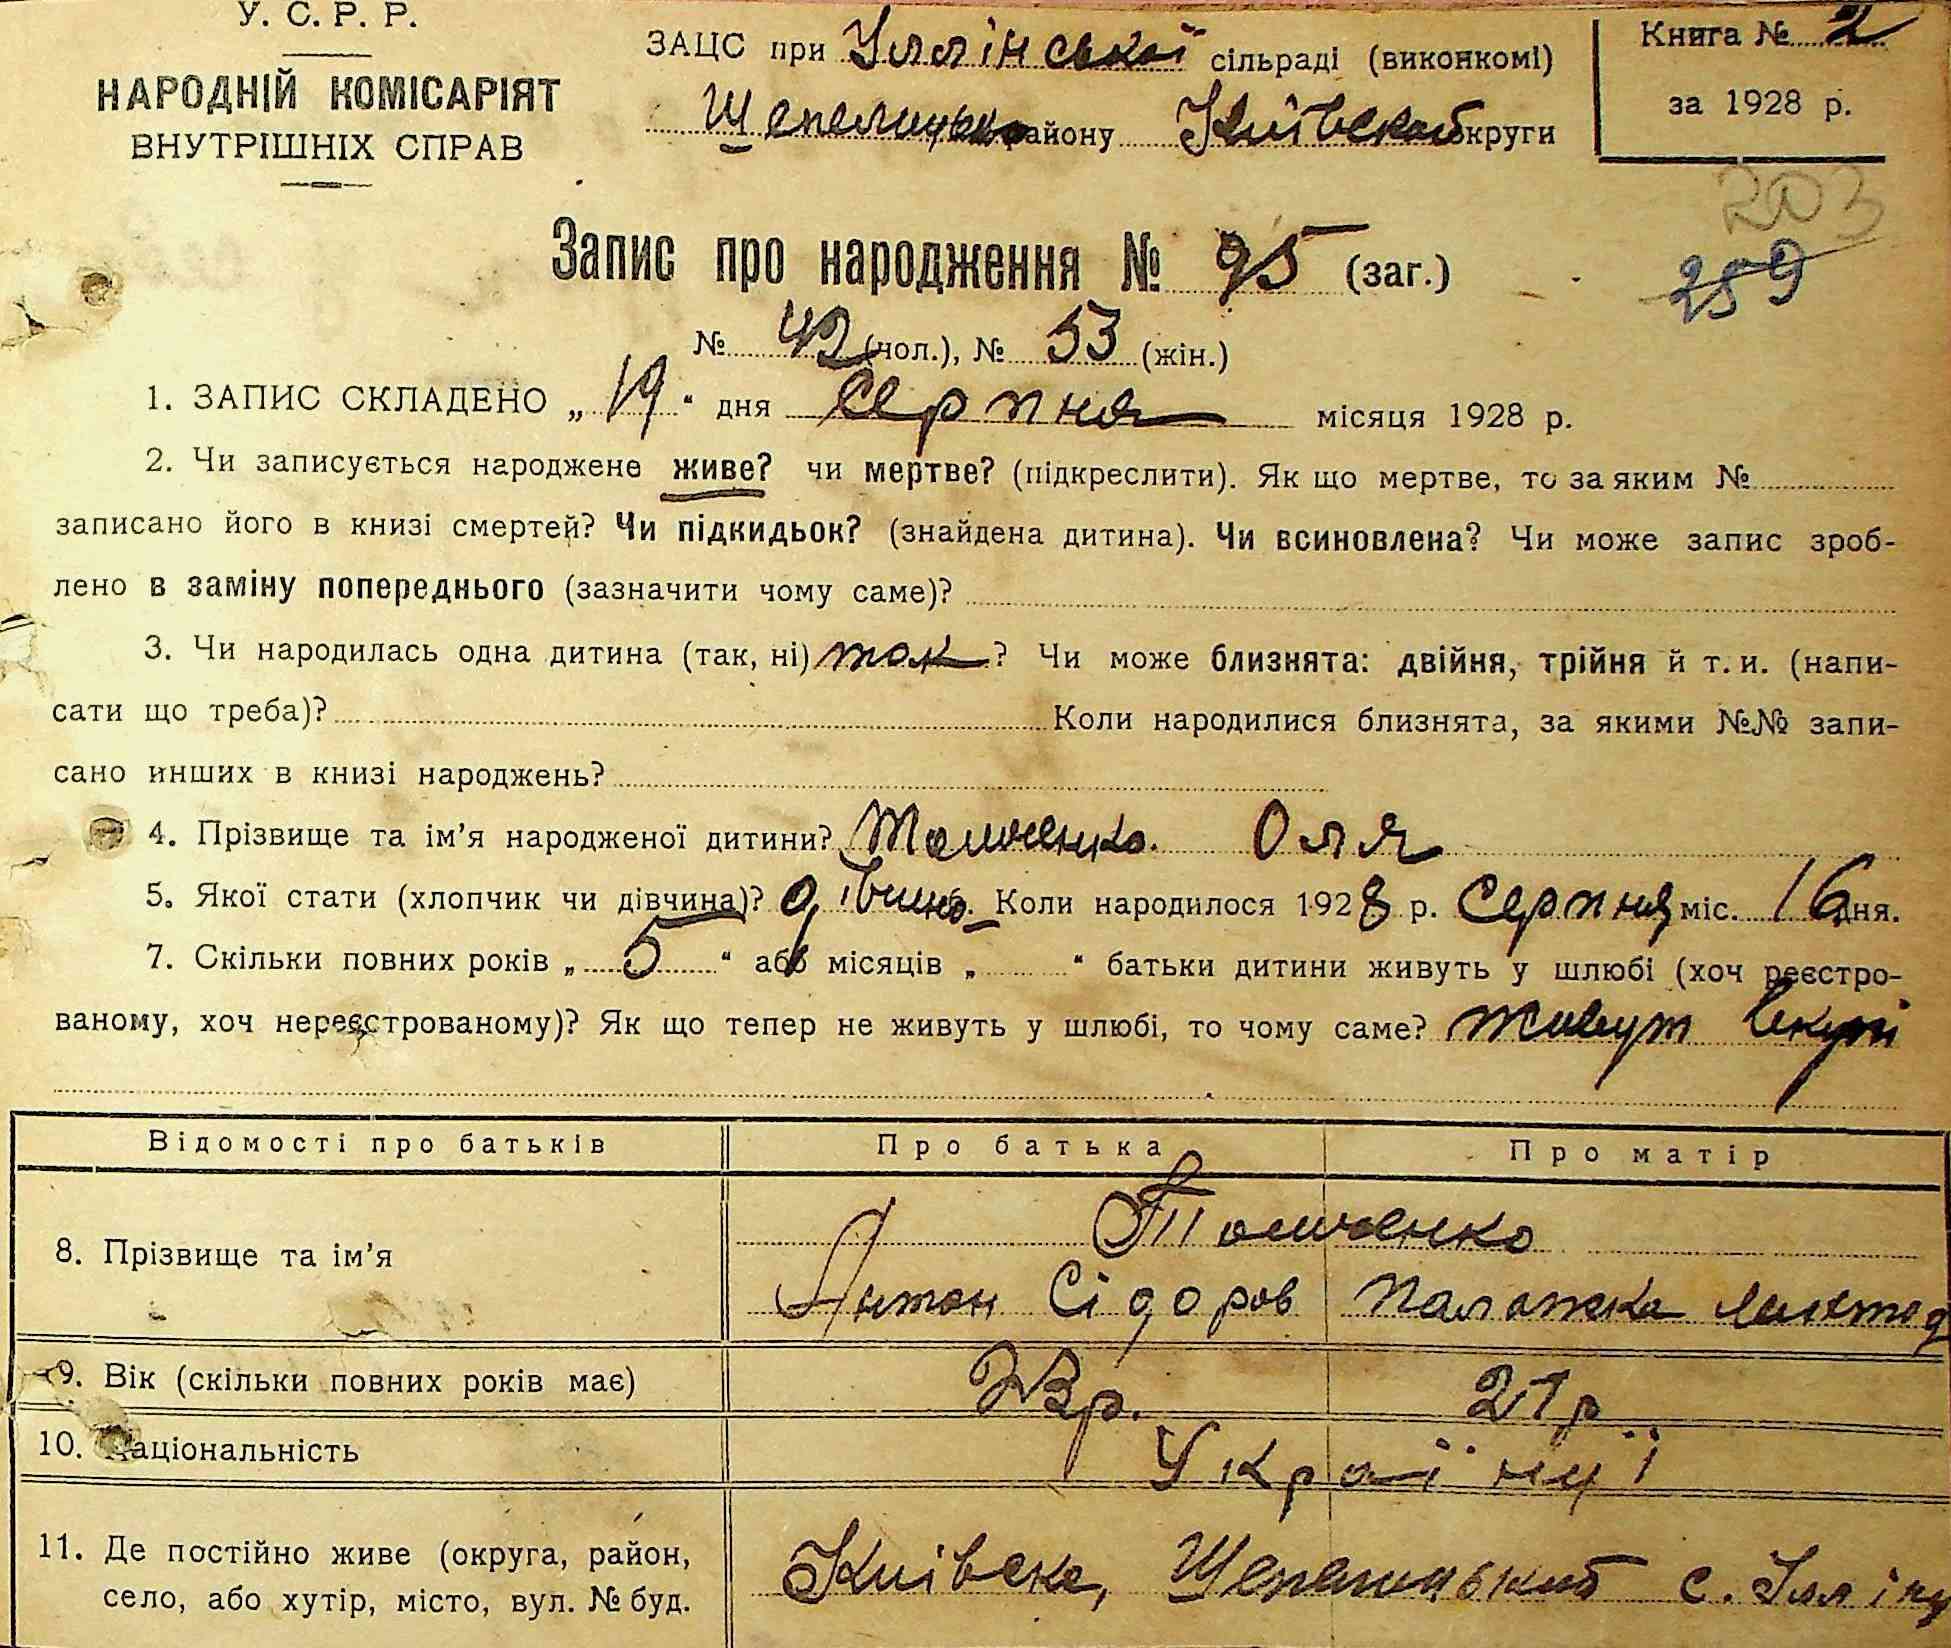 У. С. Р. Р.
НАРОДНІЙ КОМІСАРІЯТ
ВНУТРІШНІХ СПРАВ
ЗАЦС при Іллінської сільраді (виконкомі)
Шепелицько району Київської округи
Книга № 2
за 1928 р.
203
259
Запис про народження № 95 (заг.)
№ 42 (чол.), № 53 (жін.)
1. ЗАПИС СКЛАДЕНО „ 19 “ дня Серпня місяця 1928 р.
2. Чи записується народжене живе? чи мертве? (підкреслити). Як що мертве, то за яким №
записано його в книзі смертей? Чи підкидьок? (знайдена дитина). Чи всиновлена? Чи може запис зроб-
лено в заміну попереднього (зазначити чому саме)?
3. Чи народилась одна дитина (так, ні) так ? Чи може близнята: двійня, трійня й т. и. (напи-
сати що треба)? Коли народилися близнята, за якими №№ запи-
сано инших в книзі народжень?
4. Прізвище та ім’я народженої дитини? Толченко. Оля
5. Якої стати (хлопчик чи дівчина)? дівчино. Коли народилося 1928 р. Серпня міс. 16 дня.
7. Скільки повних років „ 5 “ або місяців „ “ батьки дитини живуть у шлюбі (хоч реєстро-
ваному, хоч нереєстрованому)? Як що тепер не живуть у шлюбі, то чому саме? живут вкупі
Відомості про батьків Про батька Про матір
8. Прізвище та ім’я Толченко
Антон Сідоров Палажка
9. Вік (скільки повних років має) 23 р. 21 р
10. Національність Україці
11. Де постійно живе (округа, район, Київска, Шепелицький с. Іллінц
село, або хутір, місто, вул. № буд.